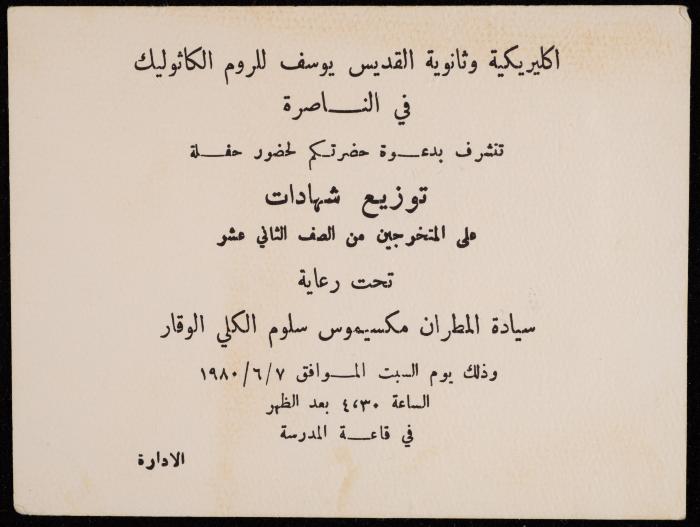 اكليريكية وثانوية القديس يوسف للروم الكاثوليك
في النـــاصرة
تتشرف بدعـــوة حضرتـكم لحضور حفـــلة
توزيع شهادات
على المتخرجين من الصف الثاني عشر
تحت رعاية
سيادة المطران مكسيموس سلوم الكلي الوقار
وذلك يوم السبت المـــوافق ١٩٨٠/٦/٧
الساعة ٤،٣٠ بعد الظهر
في قاعـــة المدرسة
الادارة